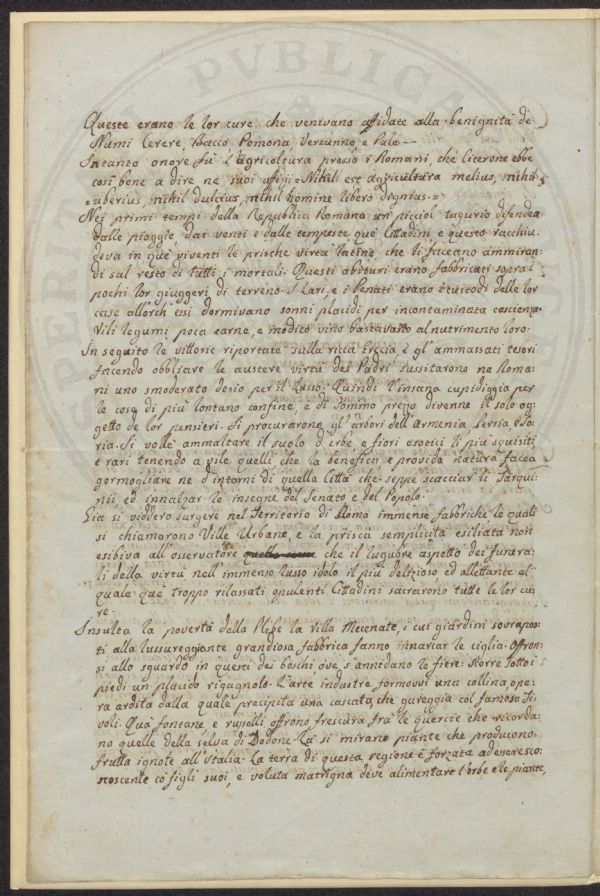 Queste erano le lor cure che venivano affidate alla benignità de
Numi Cerere, Bacco, Pomona, Vertunno, e Pale --
In tanto onore fù l'agricoltura presso i Romani, che Cicerone ebbe
così bene a dire ne suoi uffizj = Nihil est agricultura melius, nihil
= uberius, nihil dulcius, nihil homine libero dignius. =
Nei primi tempi della Republica Romana un picciol tugurio difendea
dalle pioggie, dai venti e dalle tempeste que' Cittadini e questo racchiu
deva in que' viventi le prische virtù latine che li faceano ammiran=
di sul resto di tutti i mortali. Questi abituri erano fabbricati sopra i
pochi lor giuggeri di terreno. I Lari, e i Penati erano i custodi delle lor
case allorch'essi dormivano sonni placidi per incontaminata coscienza.
Vili legumi poca carne, e modico vino bastavano al nutrimento loro.
In seguito le vittorie riportate sulla ricca Grecia e gl'ammassati tesori
facendo obbliare le austere virtù dei Padri suscitarono ne Roma=
ni uno smoderato desio per il Lusso. Quindi l'insana cupidiggia per
le cose di più lontano confine, e di sommo prezzo divenne il solo og=
getto de lor pensieri. Si procurarono gl'arbori dell'Armenia, Persia, e So=
ria. Si volle ammaltare il suolo d'erbe e fiori esotici li più squisiti
e rari tenendo a vile quelli che la benefica, e provida natura facea
germogliare ne d'intorni di quella Città che seppe scacciar li Tarqui=
nii ed innalzar le insegne del Senato e del Popolo.
Gia si viddero surgere nel Territorio di Roma immense fabbriche le quali
si chiamorono Ville Urbane, e la prisca semplicità esiliata non
esibiva all'osservatore che il lugubre aspetto dei funera=
li della virtù nell'immenso lusso idolo il più delizioso ed allettante al
quale que' troppo rilassati opulenti Cittadini sacrarono tutte le lor cu=
re.
Insulta la povertà della Plebe la Villa Mecenate, i cui giardini sovrapos=
ti alla lussureggiante grandiosa fabbrica fanno innarcar le ciglia. Offron=
si allo sguardo in questi dei boschi ove s'annidano le fiere. Scorre sotto i
piedi un placido rigagnolo. L'arte industre formovvi una collina ope=
ra ardita dalla quale precipita una cascata che gareggia col famoso Ti
voli. Quà fontane, e ruscelli offrono frescura frà le quercie che ricorda=
no quelle della selva di Dodone. Là si mirano piante che producono
frutta ignote all'Italia. La terra di questa regione è forzata ad essere sco=
noscente co' figli suoi, e voluta matrigna deve alimentare l'erbe e le piante,